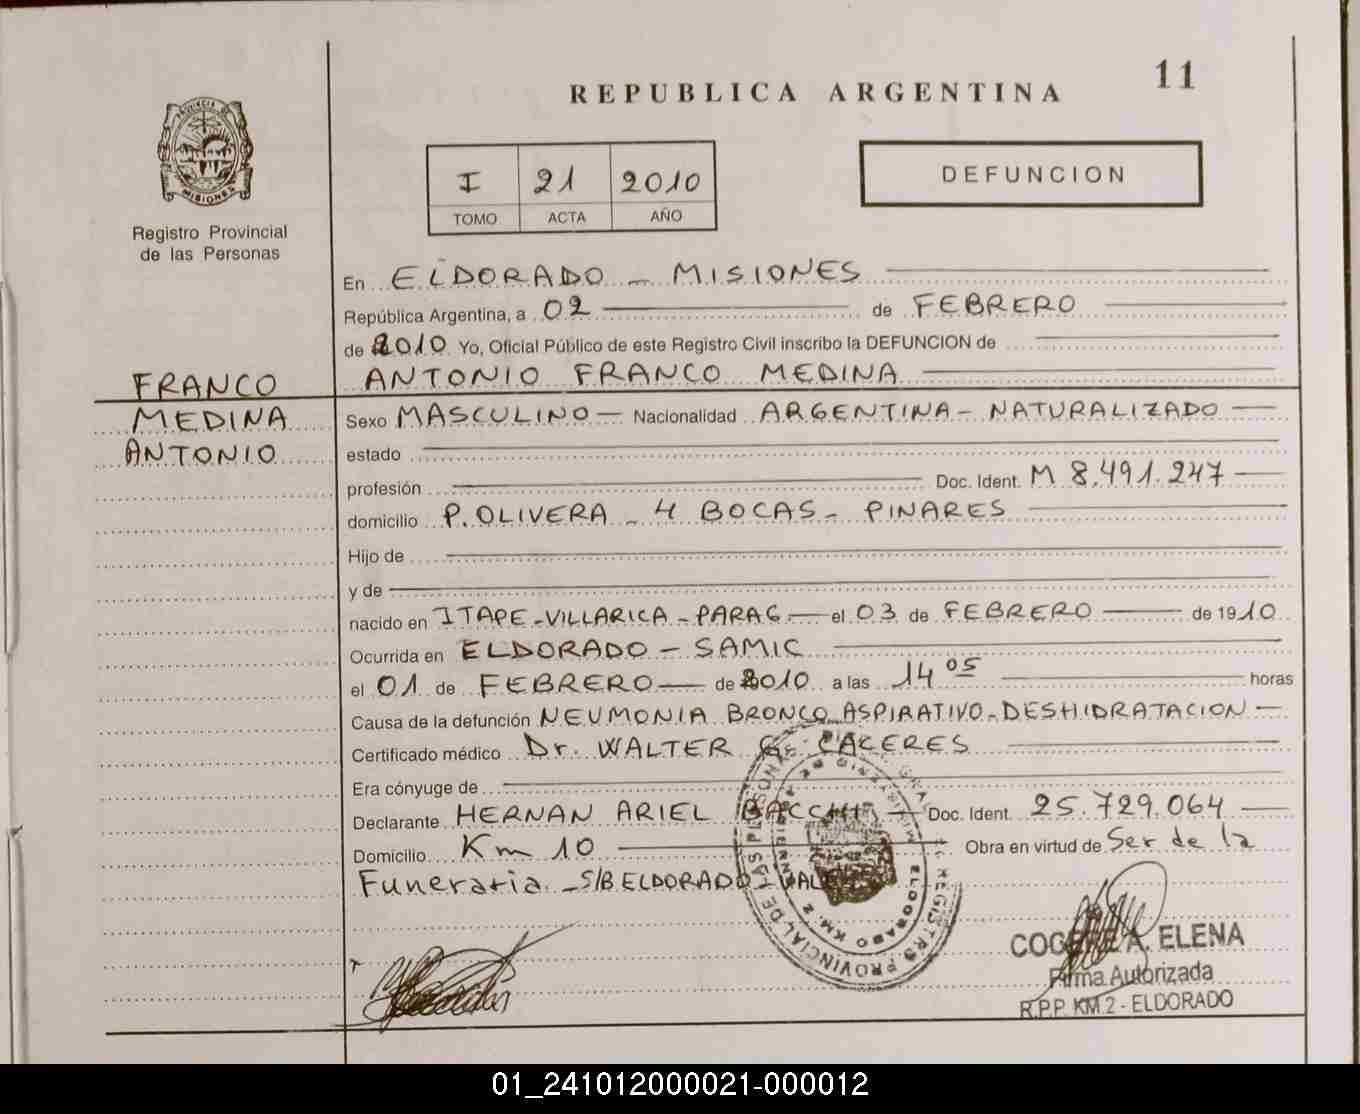 11
REPUBLICA ARGENTINA
PROVINCIA DE
MISIONES
Registro Provincial
de las Personas
I 21 2010
TOMO ACTA AÑO
DEFUNCION
En ELDORADO - MISIONES
República Argentina, a 02 de FEBRERO
de 2010 Yo, Oficial Público de este Registro Civil inscribo la DEFUNCION de
ANTONIO FRANCO MEDINA
FRANCO
MEDINA
ANTONIO
Sexo MASCULINO - Nacionalidad ARGENTINA - NATURALIZADO
estado
profesión Doc. Ident. M 8.491.247
domicilio P. OLIVERA - 4 BOCAS - PINARES
Hijo de
y de
nacido en ITAPE - VILLARICA - PARAG - el 03 de FEBRERO de 1910
Ocurrida en ELDORADO - SAMIC
el 01 de FEBRERO de 2010 a las 14 05 horas
Causa de la defunción NEUMONIA BRONCO ASPIRATIVO - DESHIDRATACION -
Certificado médico Dr. WALTER G. CACERES
Era cónyuge de
Declarante HERNAN ARIEL BACCHI Doc. Ident. 25.729.064
Domicilio Km 10 Obra en virtud de Ser de la
Funeraria - S/B ELDORADO - VALE
REGISTRO PROVINCIAL DE LAS PERSONAS
ELDORADO KM. 2 MISIONES
A. ELENA
Firma Autorizada
R.P.P. KM.2 - ELDORADO
01_241012000021-000012